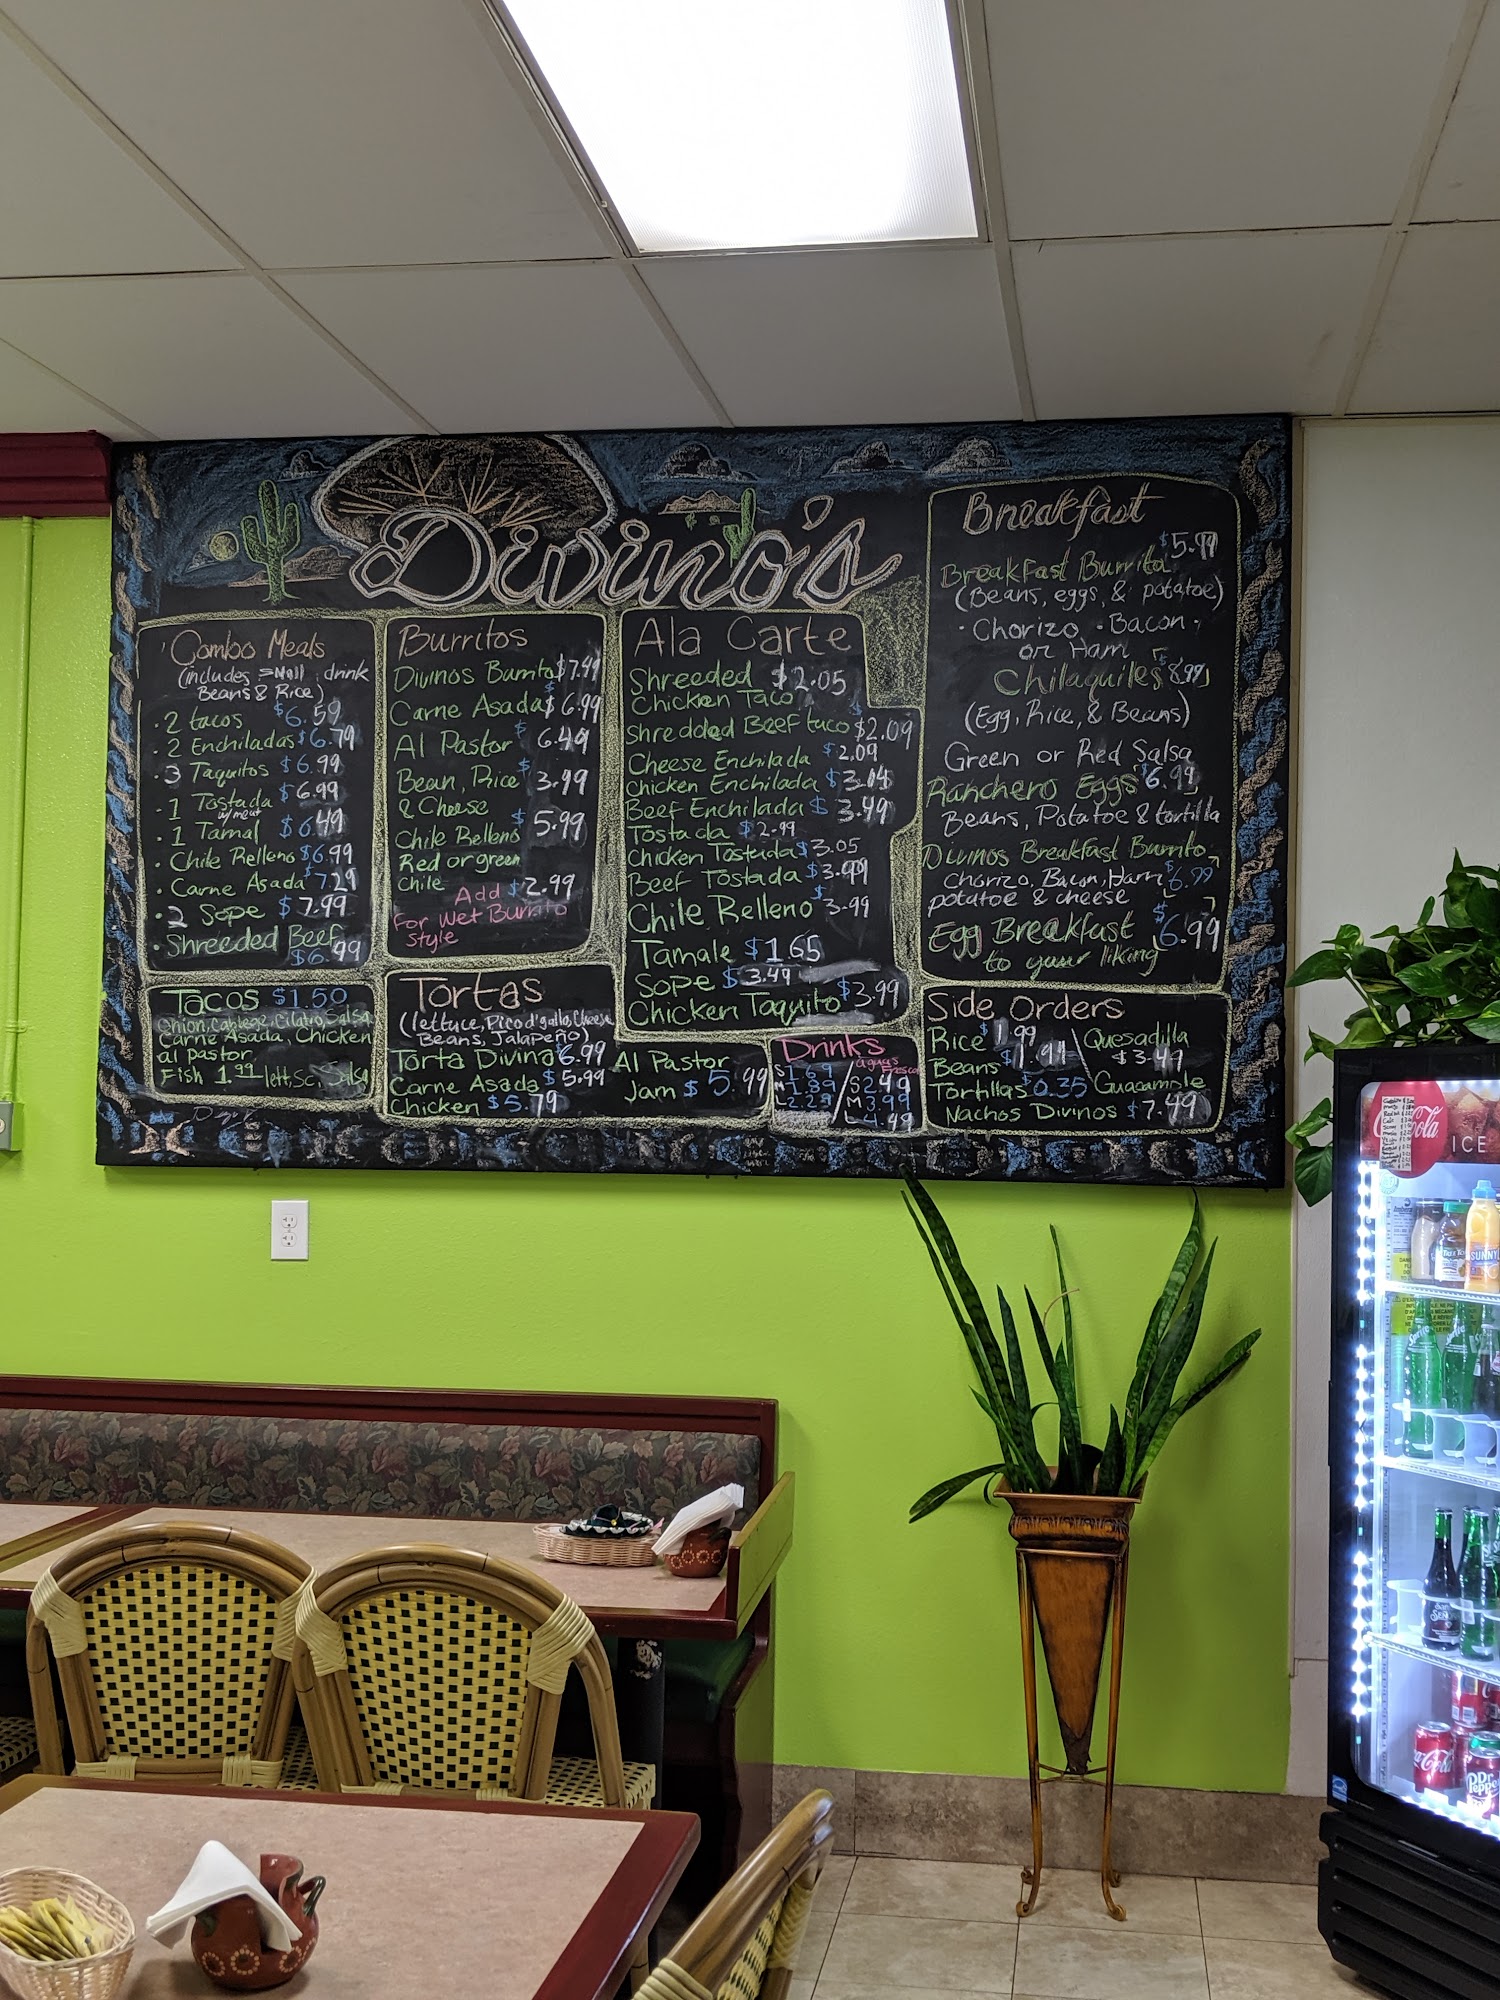 Divino's
Combo Meals
(includes small drink
Beans & Rice)
· 2 tacos $6.59
· 2 Enchiladas $6.79
· 3 Taquitos $6.99
· 1 Tostada $6.99
w/meat
· 1 Tamal $6.49
· Chile Relleno $6.99
· Carne Asada $7.29
· 2 Sope $7.99
· Shreeded Beef
$6.99
Tacos $1.50
Onion, Cabbage, Cilatro, Salsa
Carne Asada, Chicken
al pastor
Fish 1.99 lett, Sc, Salsa
Burritos
Divinos Burrito $7.49
Carne Asada $6.99
Al Pastor $6.49
Bean, Rice $3.99
& Cheese
Chile Relleno $5.99
Red or green
chile
Add $2.99
For Wet Burrito
Style
Tortas
(lettuce, Pico d'gallo, Cheese
Beans, Jalapeño)
Torta Divina 6.99
Carne Asada $5.99
Chicken $5.79
Al Pastor
Jam $5.99
Ala Carte
Shreeded $2.05
Chicken Taco
Shredded Beef taco $2.09
Cheese Enchilada $2.09
Chicken Enchilada
Beef Enchilada $3.49
Tostada $2.99
Chicken Tostada $3.05
Beef Tostada $3.99
Chile Relleno $3.99
Tamale $1.65
Sope $3.49
Chicken Taquito $3.99
Drinks
aguas
Frescas
S 1.69 / S 2.49
M 1.89 / M 3.99
L 2.29 / L 4.49
Breakfast
$5.99
Breakfast Burrito
(Beans, eggs, & potatoe)
· Chorizo · Bacon ·
or Ham
Chilaquiles $8.99
(Egg, Rice, & Beans)
Green or Red Salsa
Ranchero Eggs $6.99
Beans, Potatoe & tortilla
Divinos Breakfast Burrito
Chorizo, Bacon, Ham $6.99
potatoe & cheese
Egg Breakfast $6.99
to your liking
Side Orders
Rice $1.99
Beans $1.99
Tortillas 0.35
Quesadilla
$3.49
Guacamole
Nachos Divinos $7.49
Coca-Cola
ICE
SUNNY
Sprite
Coca-Cola
Dr Pepper